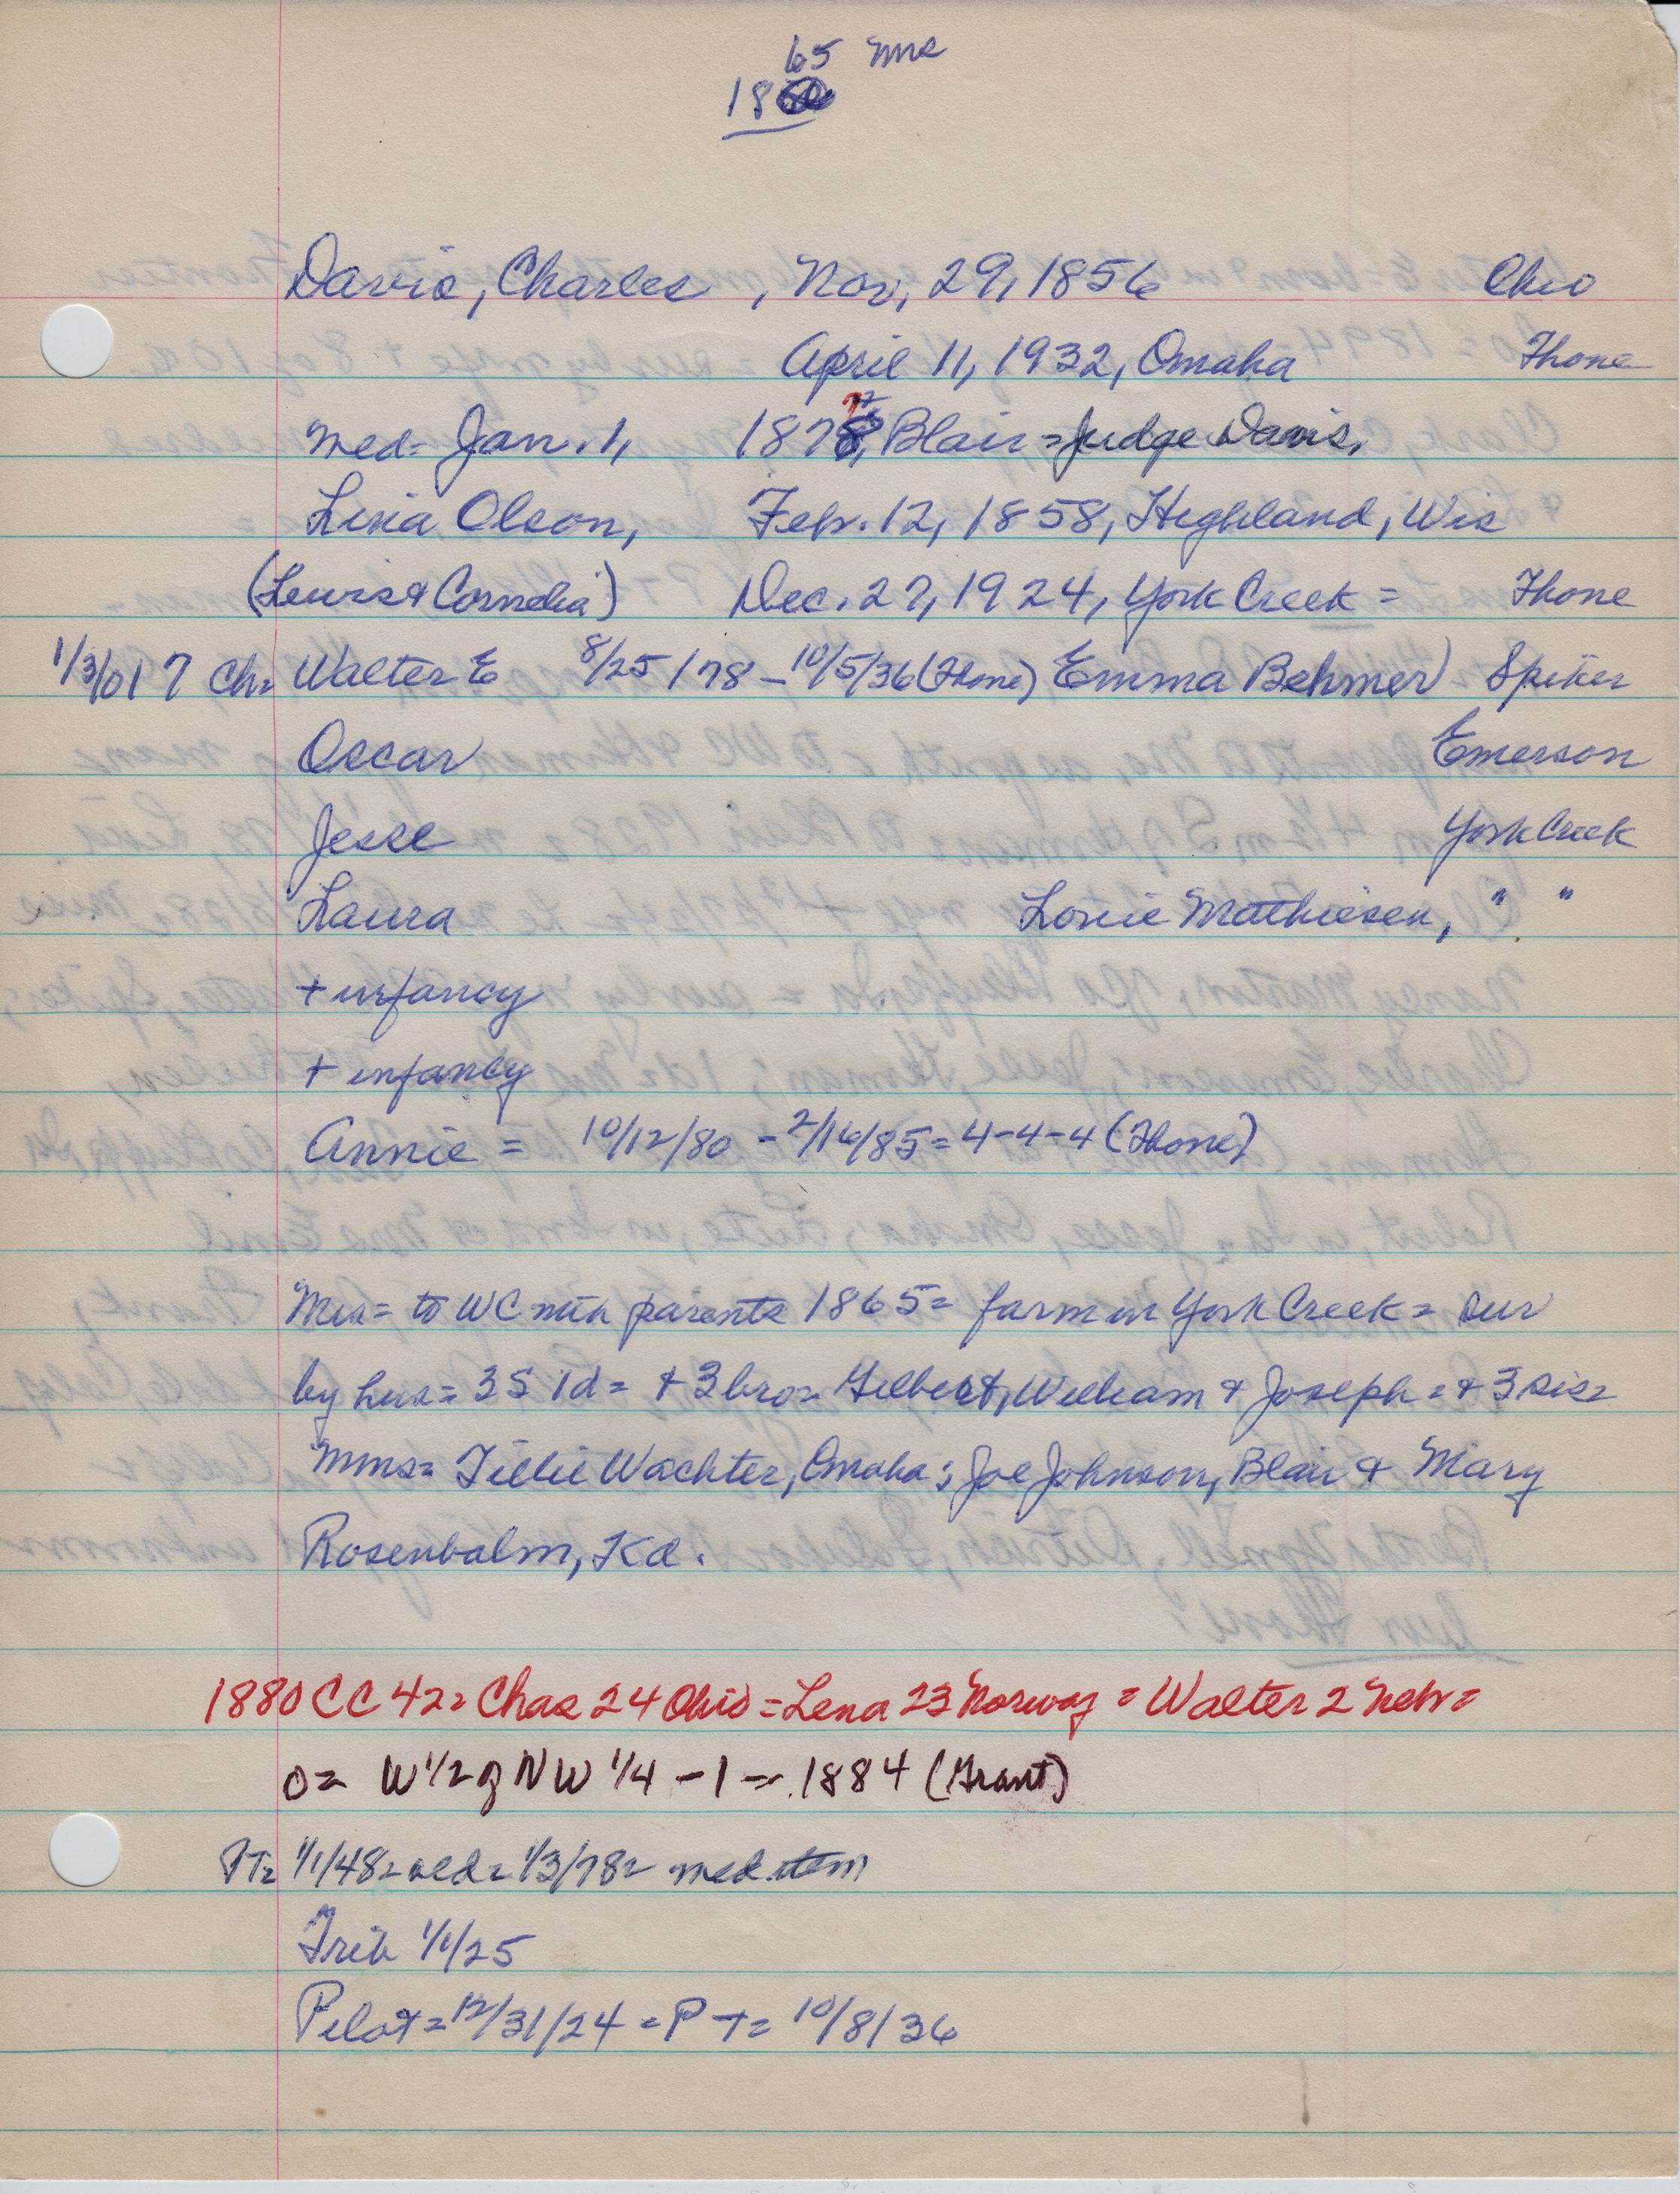 65 Mrs
18
Davis, Charles , Nov. 29, 1856 Ohio
April 11, 1932, Omaha Thone
Med= Jan. 1, 1878, Blair = Judge Davis.
Lena Olson, Feb. 12, 1858, Highland, Wis
(Lewis & Cornelia) Dec. 27, 1924, York Creek = Thone
1/3/01 7 Ch= Walter E 8/25/78 - 10/5/36 (Thone) Emma Behmer) Spiker
Oscar Emerson
Jesse York Creek
Laura Louie Mathiesen, " "
+ infancy
+ infancy
Annie = 10/12/80 - 2/16/85 = 4-4-4 (Thone)
Mrs= to WC with parents 1865= farm in York Creek = sur
by hus= 3 S 1 d= + 3 bro= Gilbert, William & Joseph = + 3 sis=
Mms= Tillie Wachter, Omaha; Joe Johnson, Blair & Mary
Rosenbalm, Kd.
1880 CC 42= Chas 24 Ohio = Lena 23 Norway = Walter 2 Nebr=
O= W 1/2 of NW 1/4 - 1 - 1884 (Grant)
PT= 1/1/48= = 1/3/78= med item
Trib 1/1/25
Pilot = 12/31/24 = P T= 10/8/36